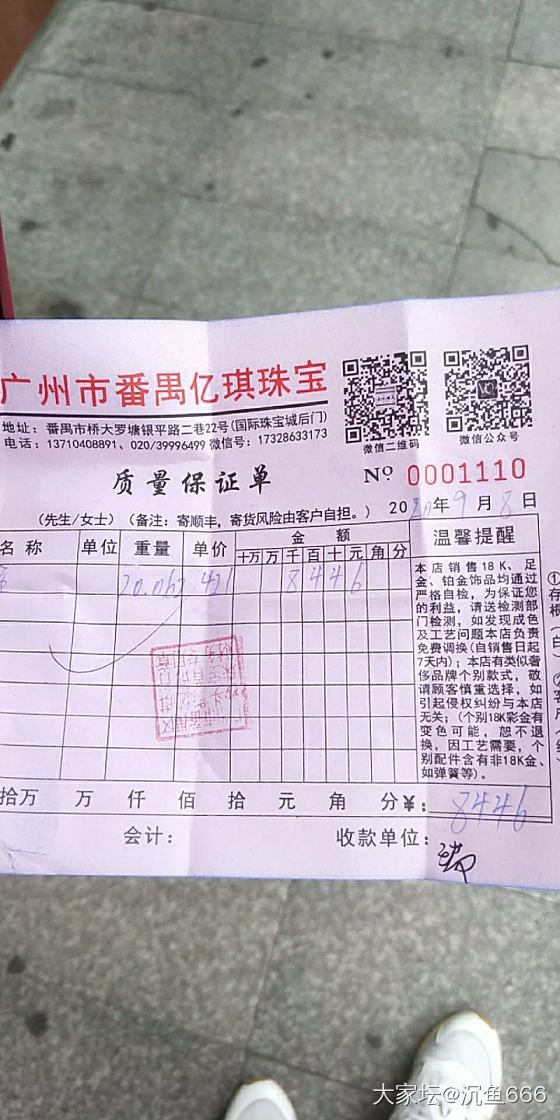 广州市番禺亿琪珠宝
地址：番禺市桥大罗塘银平路二巷22号(国际珠宝城后门)
电话：13710408891、020/39996499 微信号：17328633173
微信二维码
微信公众号
质量保证单
Nº 0001110
(先生/女士) (备注：寄顺丰，寄货风险由客户自担。) 2020年9月8日
名称 单位 重量 单价 金额 温馨提醒
十万 万 千 百 十 元 角 分
20.062 421 8 4 4 6
本店销售18K、足
金、铂金饰品均通过
严格自检，为保证您
的利益，请送检测部
门检测，如发现成色
及工艺问题本店负责
免费调换(自销售日起
7天内)；本店有类似奢
侈品牌个别款式，敬
请顾客慎重选择，如
引起侵权纠纷与本店
无关；(个别18K彩金有
变色可能，恕不退
换，因工艺需要，个
别配件含有非18K金、
如弹簧等)。
①存根(白)
拾万 万 仟 佰 拾 元 角 分 ¥：8446
会计： 收款单位：
大家坛@沉鱼666